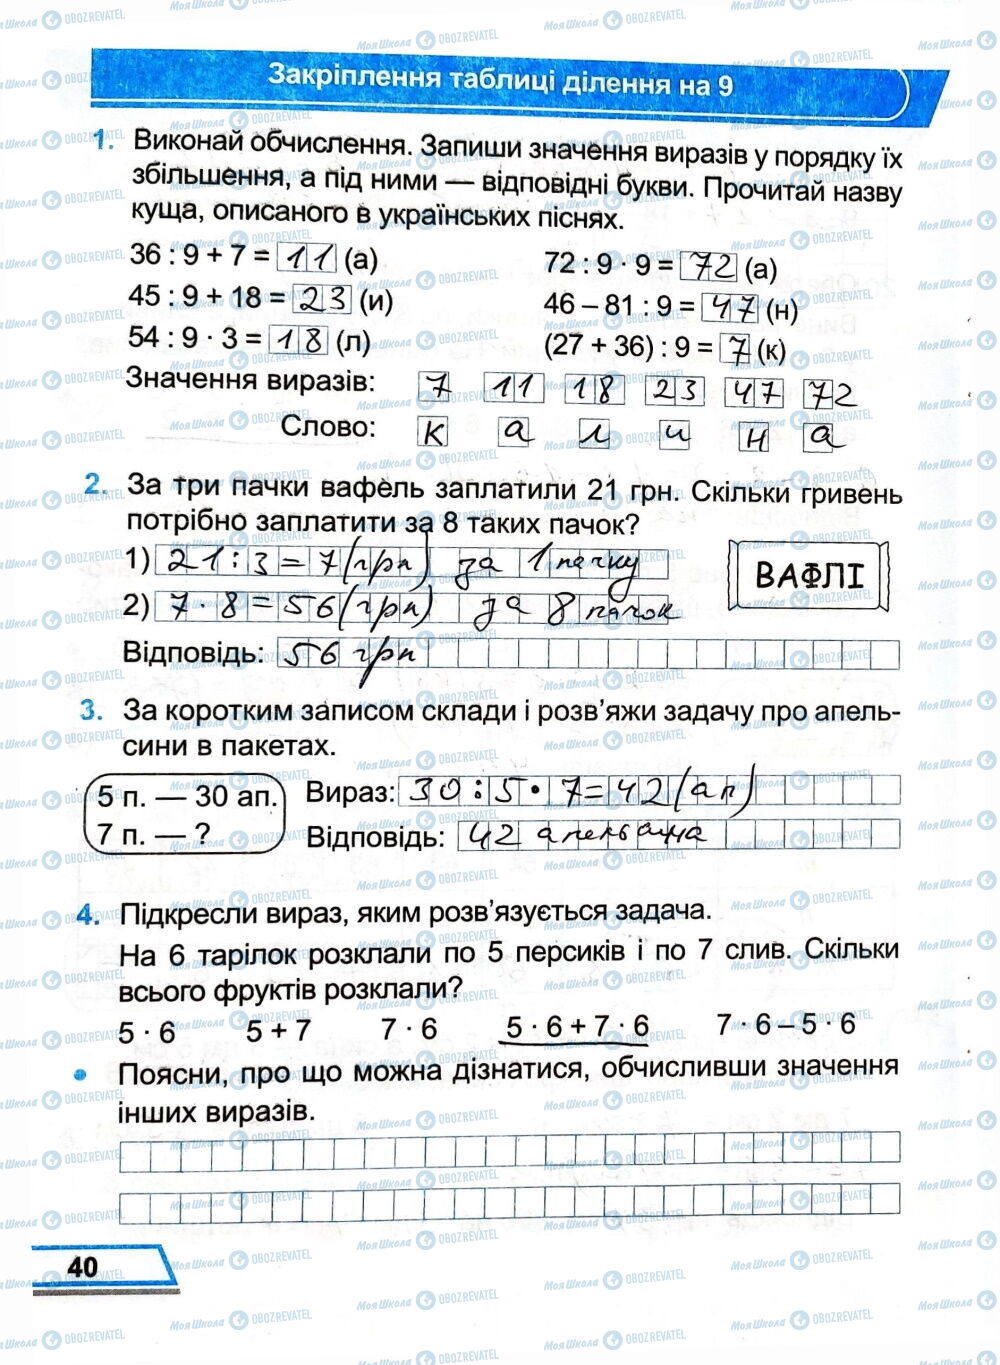 Закріплення таблиці ділення на 9
1. Виконай обчислення. Запиши значення виразів у порядку їх
збільшення, а під ними — відповідні букви. Прочитай назву
куща, описаного в українських піснях.
36 : 9 + 7 = 11 (а) 72 : 9 · 9 = 72 (а)
45 : 9 + 18 = 23 (и) 46 – 81 : 9 = 47 (н)
54 : 9 · 3 = 18 (л) (27 + 36) : 9 = 7 (к)
Значення виразів: 7 11 18 23 47 72
Слово: к а л и н а
2. За три пачки вафель заплатили 21 грн. Скільки гривень
потрібно заплатити за 8 таких пачок?
1) 21 : 3 = 7 (грн) за 1 пачку
ВАФЛІ
2) 7 · 8 = 56 (грн) за 8 пачок
Відповідь: 56 грн
3. За коротким записом склади і розв’яжи задачу про апель-
сини в пакетах.
5 п. — 30 ап. Вираз: 30 : 5 · 7 = 42 (ап)
7 п. — ? Відповідь: 42 апельсина
4. Підкресли вираз, яким розв’язується задача.
На 6 тарілок розклали по 5 персиків і по 7 слив. Скільки
всього фруктів розклали?
5 · 6 5 + 7 7 · 6 5 · 6 + 7 · 6 7 · 6 – 5 · 6
• Поясни, про що можна дізнатися, обчисливши значення
інших виразів.
40
МояШкола OBOZREVATEL